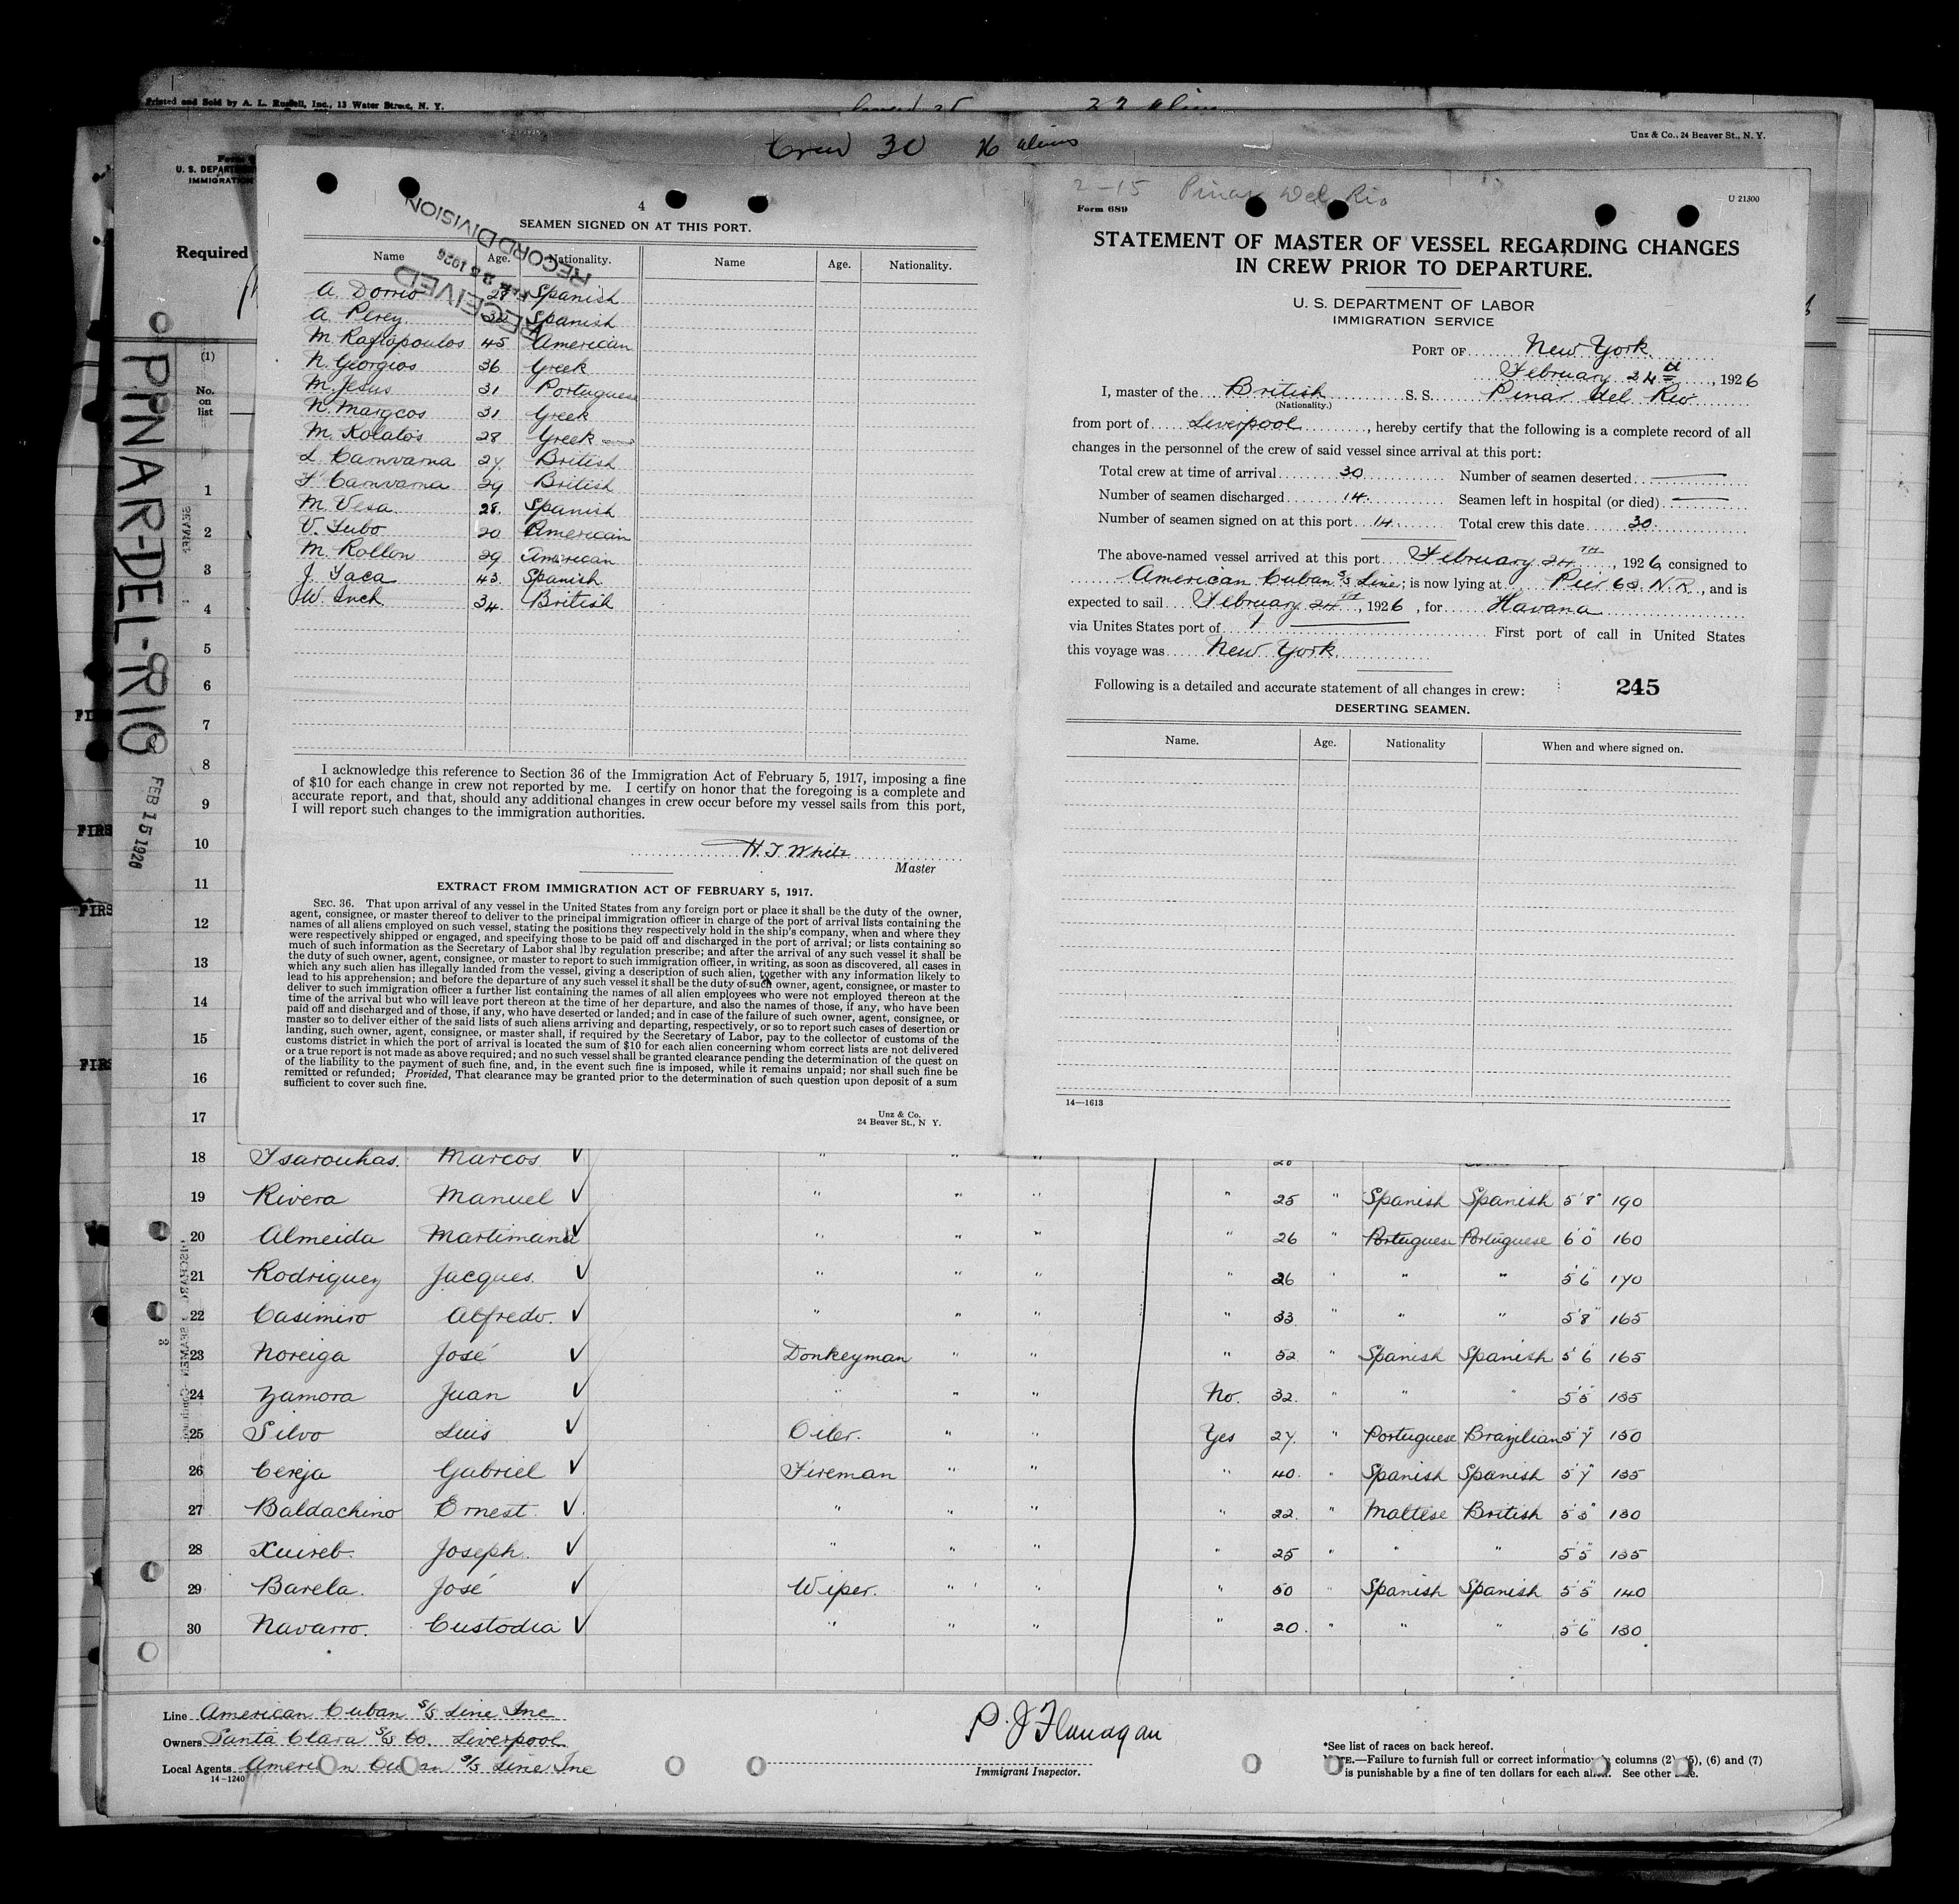 Printed and Sold by A. L. Russell, Inc., 13 Water Street, N. Y.
Crew 30 16 aliens
Unz & Co., 24 Beaver St., N. Y.
U. S. DEPARTM
IMMIGRATION
Required
PINAR-DEL-RIO
FEB 15 1926
(1)
No.
on
list
1
2
3
4
5
6
7
8
9
10
11
12
13
14
15
16
17
4
SEAMEN SIGNED ON AT THIS PORT.
RECEIVED
FEB 25 1926
RECORD DIVISION
Name Age. Nationality. Name Age. Nationality.
A. Dorrio 28 Spanish
A. Perez 32 Spanish
M. Raftopoulos 45 American
N. Georgios 36 Greek
M. Jesus 31 Portuguese
N. Margcos 31 Greek
M. Kolatos 28 Greek
L. Camvama 27 British
F. Camvama 29 British
M. Vesa 28. Spanish
V. Tubo 20 American
M. Rollon 29 American
J. Taca 43. Spanish
W. Inch 34. British
I acknowledge this reference to Section 36 of the Immigration Act of February 5, 1917, imposing a fine
of $10 for each change in crew not reported by me. I certify on honor that the foregoing is a complete and
accurate report, and that, should any additional changes in crew occur before my vessel sails from this port,
I will report such changes to the immigration authorities.
H. T. White
Master
EXTRACT FROM IMMIGRATION ACT OF FEBRUARY 5, 1917.
SEC. 36. That upon arrival of any vessel in the United States from any foreign port or place it shall be the duty of the owner,
agent, consignee, or master thereof to deliver to the principal immigration officer in charge of the port of arrival lists containing the
names of all aliens employed on such vessel, stating the positions they respectively hold in the ship's company, when and where they
were respectively shipped or engaged, and specifying those to be paid off and discharged in the port of arrival; or lists containing so
much of such information as the Secretary of Labor shal lby regulation prescribe; and after the arrival of any such vessel it shall be
the duty of such owner, agent, consignee, or master to report to such immigration officer, in writing, as soon as discovered, all cases in
which any such alien has illegally landed from the vessel, giving a description of such alien, together with any information likely to
lead to his apprehension; and before the departure of any such vessel it shall be the duty of such owner, agent, consignee, or master to
deliver to such immigration officer a further list containing the names of all alien employees who were not employed thereon at the
time of the arrival but who will leave port thereon at the time of her departure, and also the names of those, if any, who have been
paid off and discharged and of those, if any, who have deserted or landed; and in case of the failure of such owner, agent, consignee, or
master so to deliver either of the said lists of such aliens arriving and departing, respectively, or so to report such cases of desertion or
landing, such owner, agent, consignee, or master shall, if required by the Secretary of Labor, pay to the collector of customs of the
customs district in which the port of arrival is located the sum of $10 for each alien concerning whom correct lists are not delivered
or a true report is not made as above required; and no such vessel shall be granted clearance pending the determination of the quest on
of the liability to the payment of such fine, and, in the event such fine is imposed, while it remains unpaid; nor shall such fine be
remitted or refunded; Provided, That clearance may be granted prior to the determination of such question upon deposit of a sum
sufficient to cover such fine.
Unz & Co.
24 Beaver St., N Y.
2-15 Pinar Del Rio
Form 689 U 21300
STATEMENT OF MASTER OF VESSEL REGARDING CHANGES
IN CREW PRIOR TO DEPARTURE.
U. S. DEPARTMENT OF LABOR
IMMIGRATION SERVICE
PORT OF New York
February 24th, 1926
I, master of the British S. S. Pinar del Rio
(Nationality.)
from port of Liverpool, hereby certify that the following is a complete record of all
changes in the personnel of the crew of said vessel since arrival at this port:
Total crew at time of arrival 30 Number of seamen deserted
Number of seamen discharged 14 Seamen left in hospital (or died)
Number of seamen signed on at this port 14 Total crew this date 30.
The above-named vessel arrived at this port February 24TH, 1926, consigned to
American Cuban S/S Line; is now lying at Pier 63 N.R., and is
expected to sail February 24TH, 1926, for Havana
via Unites States port of First port of call in United States
this voyage was New York
Following is a detailed and accurate statement of all changes in crew: 245
DESERTING SEAMEN.
Name. Age. Nationality When and where signed on.
14—1613
18 Tsarouhas. Marcos " " "
19 Rivera Manuel " " " " 25 " Spanish Spanish 5'8" 190
20 Almeida Martimana " " " " 26 " Portuguese Portuguese 6'0" 160
21 Rodriguez Jacques. " " " " 26 " " " 5'6" 170
22 Casimiro Alfredo. " " " " 33 " " " 5'8" 165
23 Noreiga José Donkeyman " " " 52 " Spanish Spanish 5'6" 165
24 Zamora Juan " " " No. 32. " " " 5'5" 135
25 Silvo Luis Oiler. " " Yes 27. " Portuguese Brazilian 5'7" 150
26 Cereja Gabriel Fireman " " " 40. " Spanish Spanish 5'7" 135
27 Baldachino Ernest. " " " " 22. " Maltese British 5'3" 130
28 Xuireb. Joseph. " " " " 25 " " " 5'5" 135
29 Barela. José Wiper. " " " 50 " Spanish Spanish 5'5" 140
30 Navarro. Custodia " " " " 20. " " " 5'6" 130
Line American Cuban S/S Line Inc
Owners Santa Clara S/S Co. Liverpool
Local Agents American Cuban S/S Line Inc
14-1240
P. J Flanagan
Immigrant Inspector.
*See list of races on back hereof.
NOTE.—Failure to furnish full or correct information in columns (2), (5), (6) and (7)
is punishable by a fine of ten dollars for each alien. See other side.